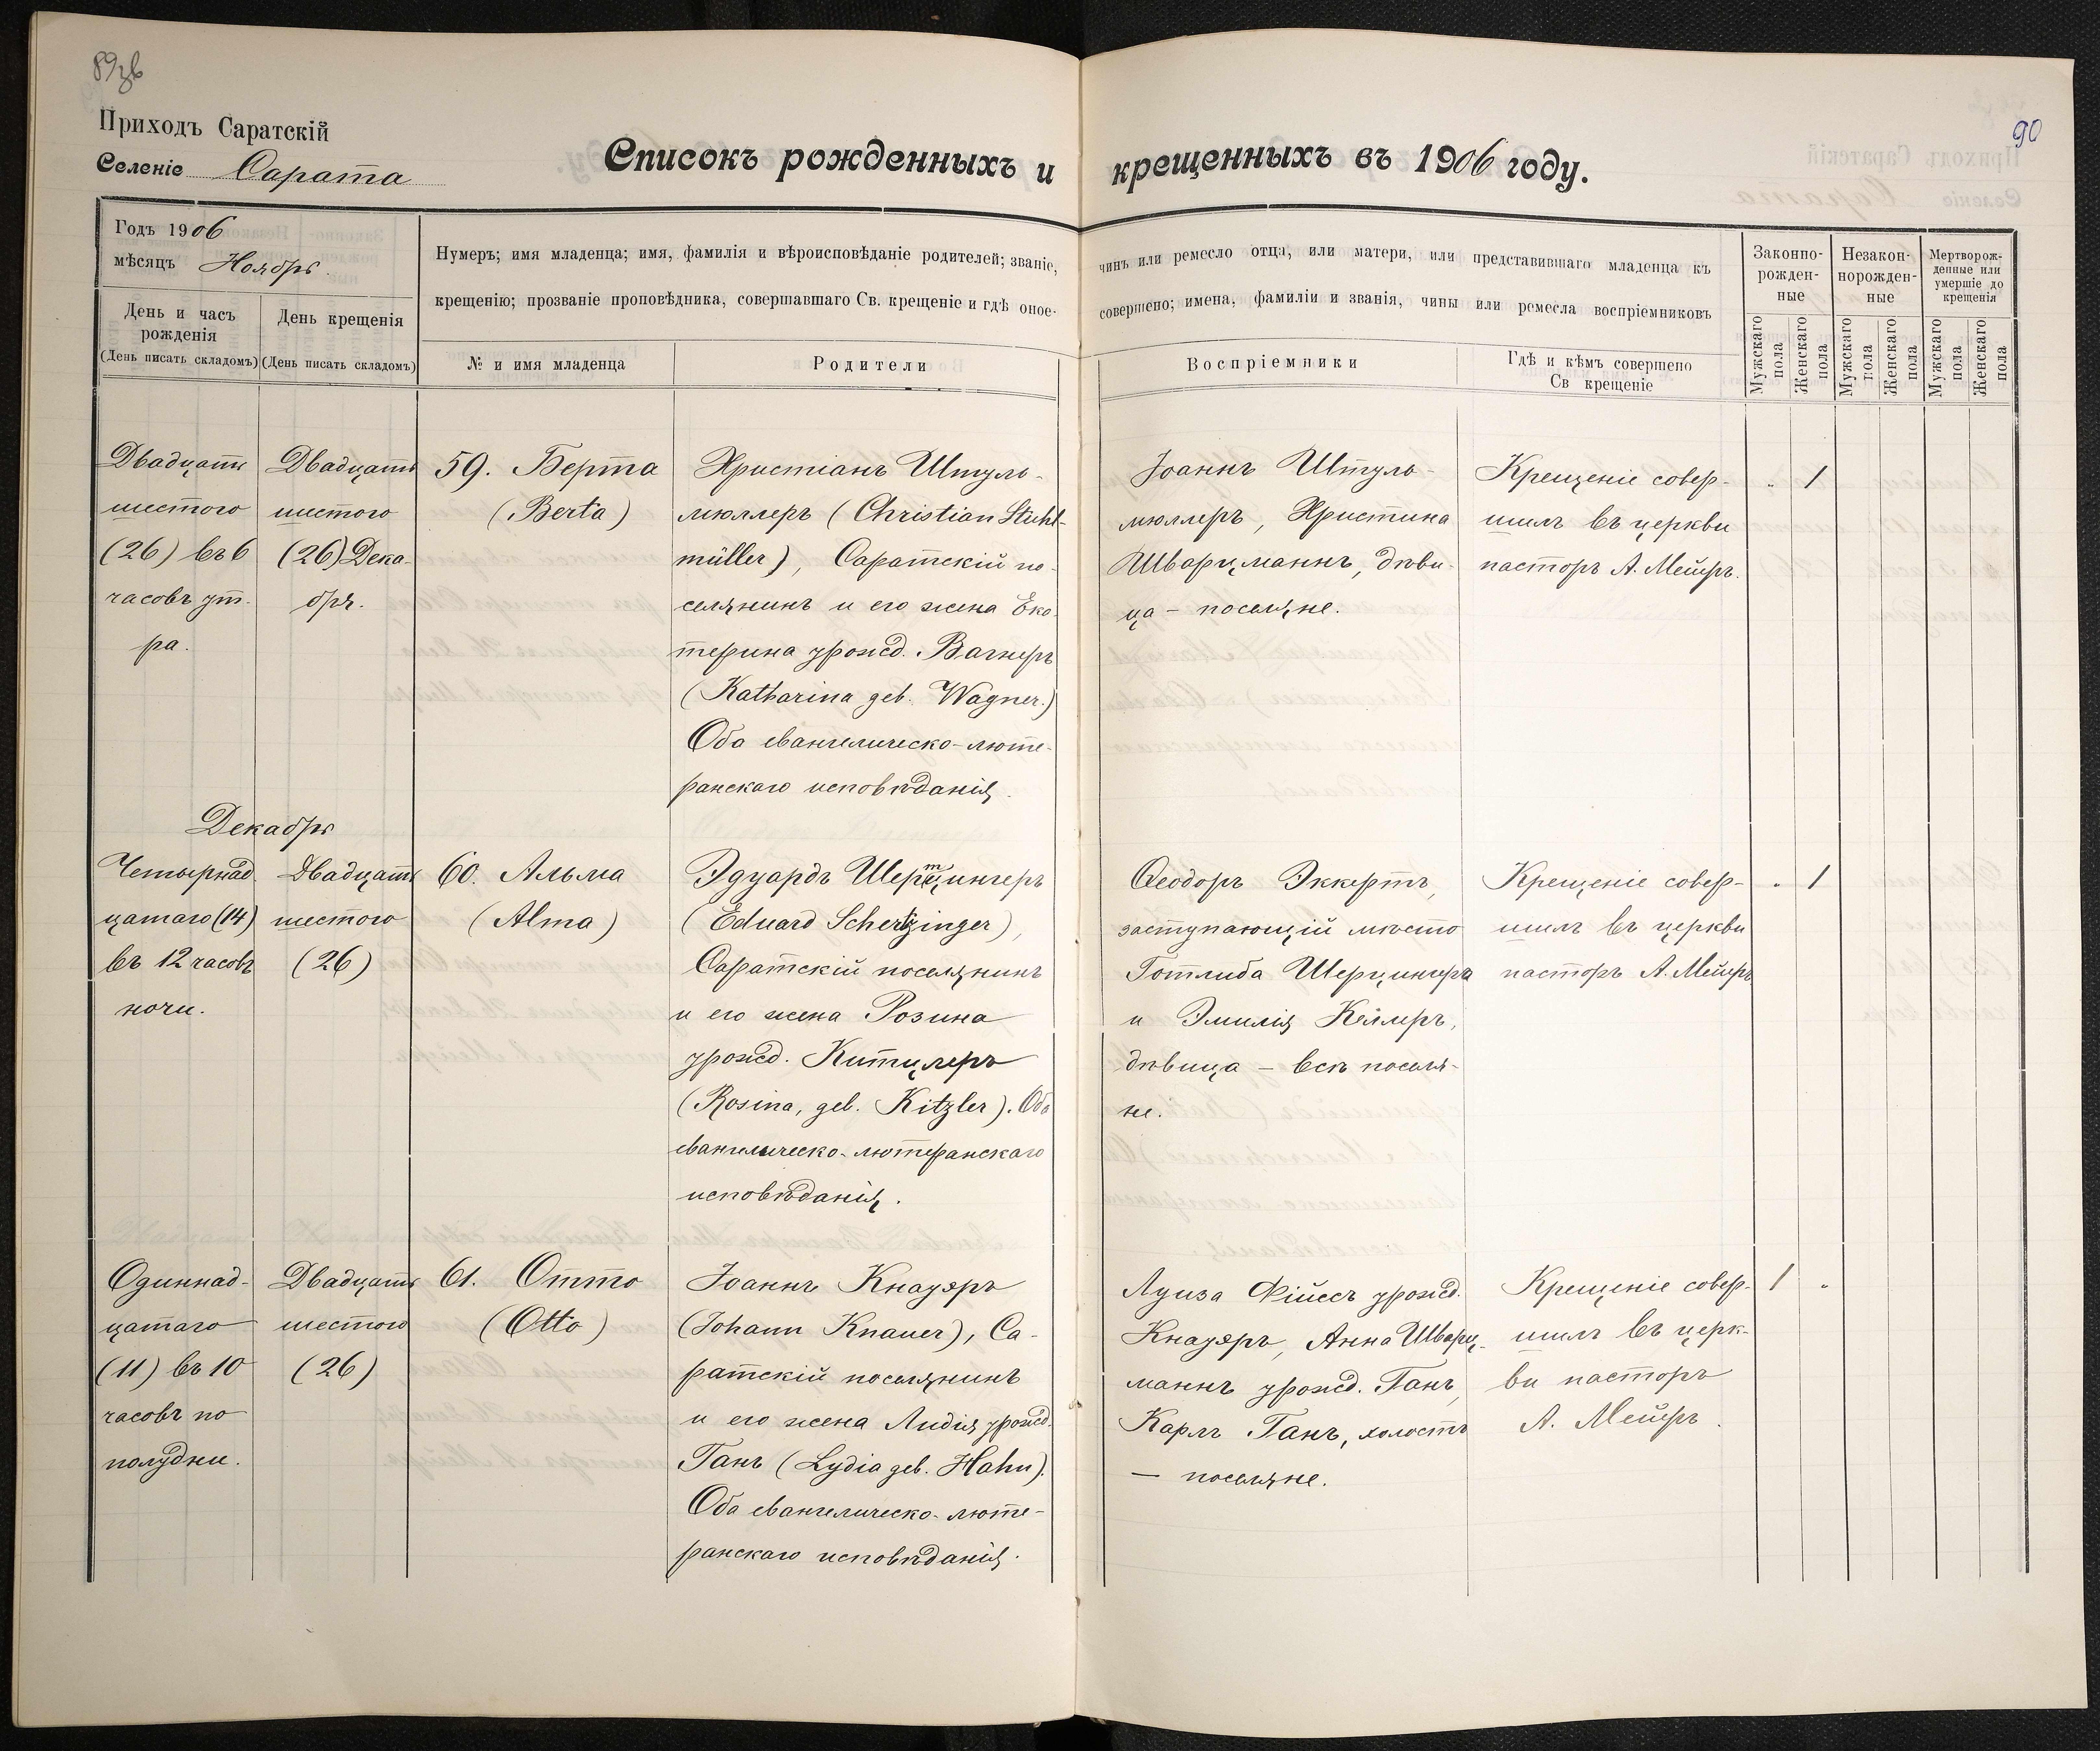 89зв
90
Приходъ Саратскій
Селеніе Сарата
Списокъ рожденныхъ и крещенныхъ въ 1906 году.
Годъ 1906
мѣсяцъ Ноябрь.
День и часъ
рожденія
(День писать складомъ)
День крещенія
(День писать складомъ)
Нумеръ; имя младенца; имя, фамилія и вѣроисповѣданіе родителей; званіе, чинъ или ремесло отца, или матери, или представившаго младенца къ
крещенію; прозваніе проповѣдника, совершавшаго Св. крещеніе и гдѣ оное совершено; имена, фамиліи и званія, чины или ремесла воспріемниковъ
№ и имя младенца
Родители
Воспріемники
Гдѣ и кѣмъ совершено
Св крещеніе
Законно-
рожден-
ные
Незакон-
норожден-
ные
Мертворож-
денные или
умершіе до
крещенія
Мужскаго
пола
Женскаго
пола
Мужскаго
пола
Женскаго
пола
Мужскаго
пола
Женскаго
пола
Двадцать
шестого
(26) въ 6
часовъ ут-
ра.
Двадцать
шестого
(26) Дека-
бря.
59. Берта
(Berta)
Христіанъ Штуль-
мюллеръ (Christian Stuhl-
müller), Саратскій по-
селянинъ и его жена Ека-
терина урожд. Вагнеръ
(Katharina geb. Wagner.)
Оба евангелическо-люте-
ранскаго исповѣданія.
Іоаннъ Штуль-
мюллеръ, Христина
Шварцманнъ, дѣви-
ца – поселяне.
Крещеніе совер-
шилъ въ церкви
пасторъ А. Мейеръ.
" 1
Декабрь
Четырнад-
цатаго (14)
въ 12 часовъ
ночи.
Двадцать
шестого
(26)
60. Альма
(Alma)
Эдуардъ Шертцингеръ
(Eduard Schertzinger),
Саратскій поселянинъ
и его жена Розина
урожд. Китцлеръ
(Rosina, geb. Kitzler). Оба
евангелическо-лютеранскаго
исповѣданія.
Ѳеодоръ Эккертъ,
заступающій мѣсто
Готлиба Шерцингера
и Эмилія Келлеръ,
дѣвица – всѣ поселя-
не.
Крещеніе совер-
шилъ въ церкви
пасторъ А. Мейеръ
" 1
Одиннад-
цатаго
(11) въ 10
часовъ по
полудни.
Двадцать
шестого
(26)
61. Отто
(Otto)
Іоаннъ Кнауэръ
(Johann Knauer), Са-
ратскій поселянинъ
и его жена Лидія урожд.
Ганъ (Lydia geb. Hahn).
Оба евангелическо-люте-
ранскаго исповѣданія.
Луиза Фійесъ урожд.
Кнауэръ, Анна Шварц-
маннъ урожд. Ганъ,
Карлъ Ганъ, холостъ
– поселяне.
Крещеніе совер-
шилъ въ церк-
ви пасторъ
А. Мейеръ.
1 "